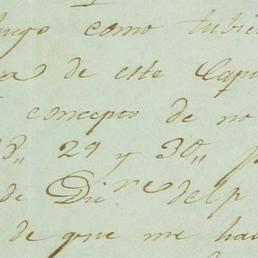 luego como tubie
a de este Cap
concepto de no
8,, 29 y 30,,
de Dic.re del p
de que me ha